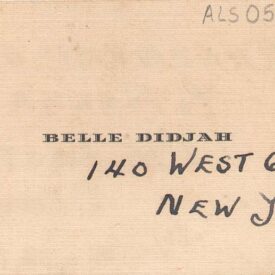 ALS05
BELLE DIDJAH
140 WEST
NEW